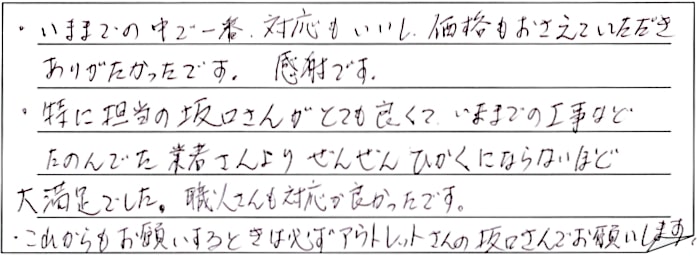 ・いままでの中で一番、対応もいいし、価格もおさえていただき
ありがたかったです。 感謝です。
・特に担当の坂口さんがとても良くて、いままでの工事など
たのんでた業者さんよりぜんぜんひかくにならないほど
大満足でした。職人さんも対応が良かったです。
・これからもお願いするときは必ずアウトレットさんの坂口さんでお願いします。